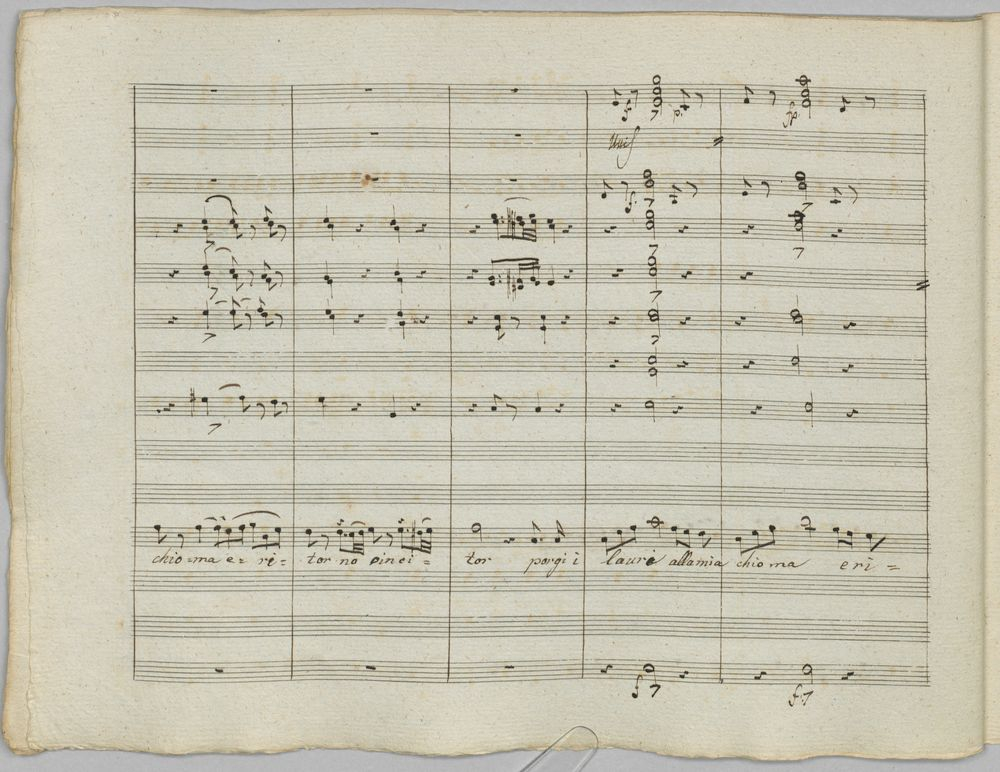 f. p. fp.
Unis
f.
chio=ma e= ri= tor no vinci= tor porgi i lauri alla mia chioma e ri=
f f.